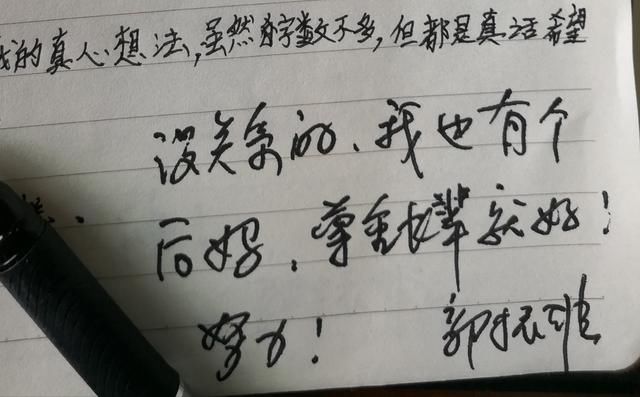 我的真心想法,虽然字数不多,但都是真话希望
没关系的、我也有个
后妈、尊重长辈就好!
努力! 郭振